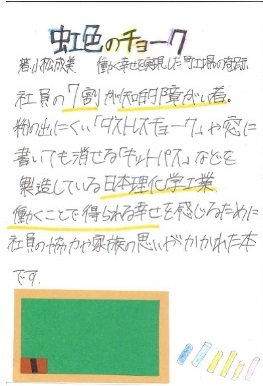 虹色のチョーク
著小松成美 働く幸せを実現した町工場の奇跡
社員の7割が知的障がい者。
粉の出にくい「ダストレスチョーク」や窓に
書いても消せる「キットパス」などを
製造している日本理化学工業
働くことで得られる幸せを感じるために
社員の協力や家族の思いがかかれた本
です。